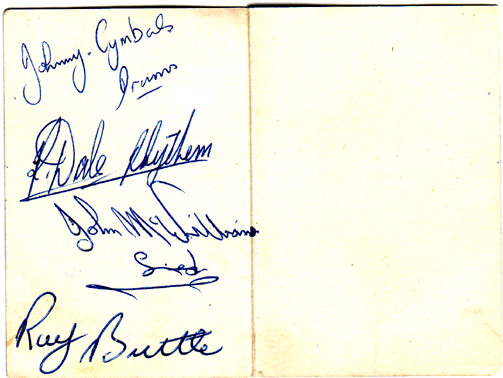 Johnny. Cymbals
Drums
P. Dale Rhythem
John McWilliams
Ray Buttle